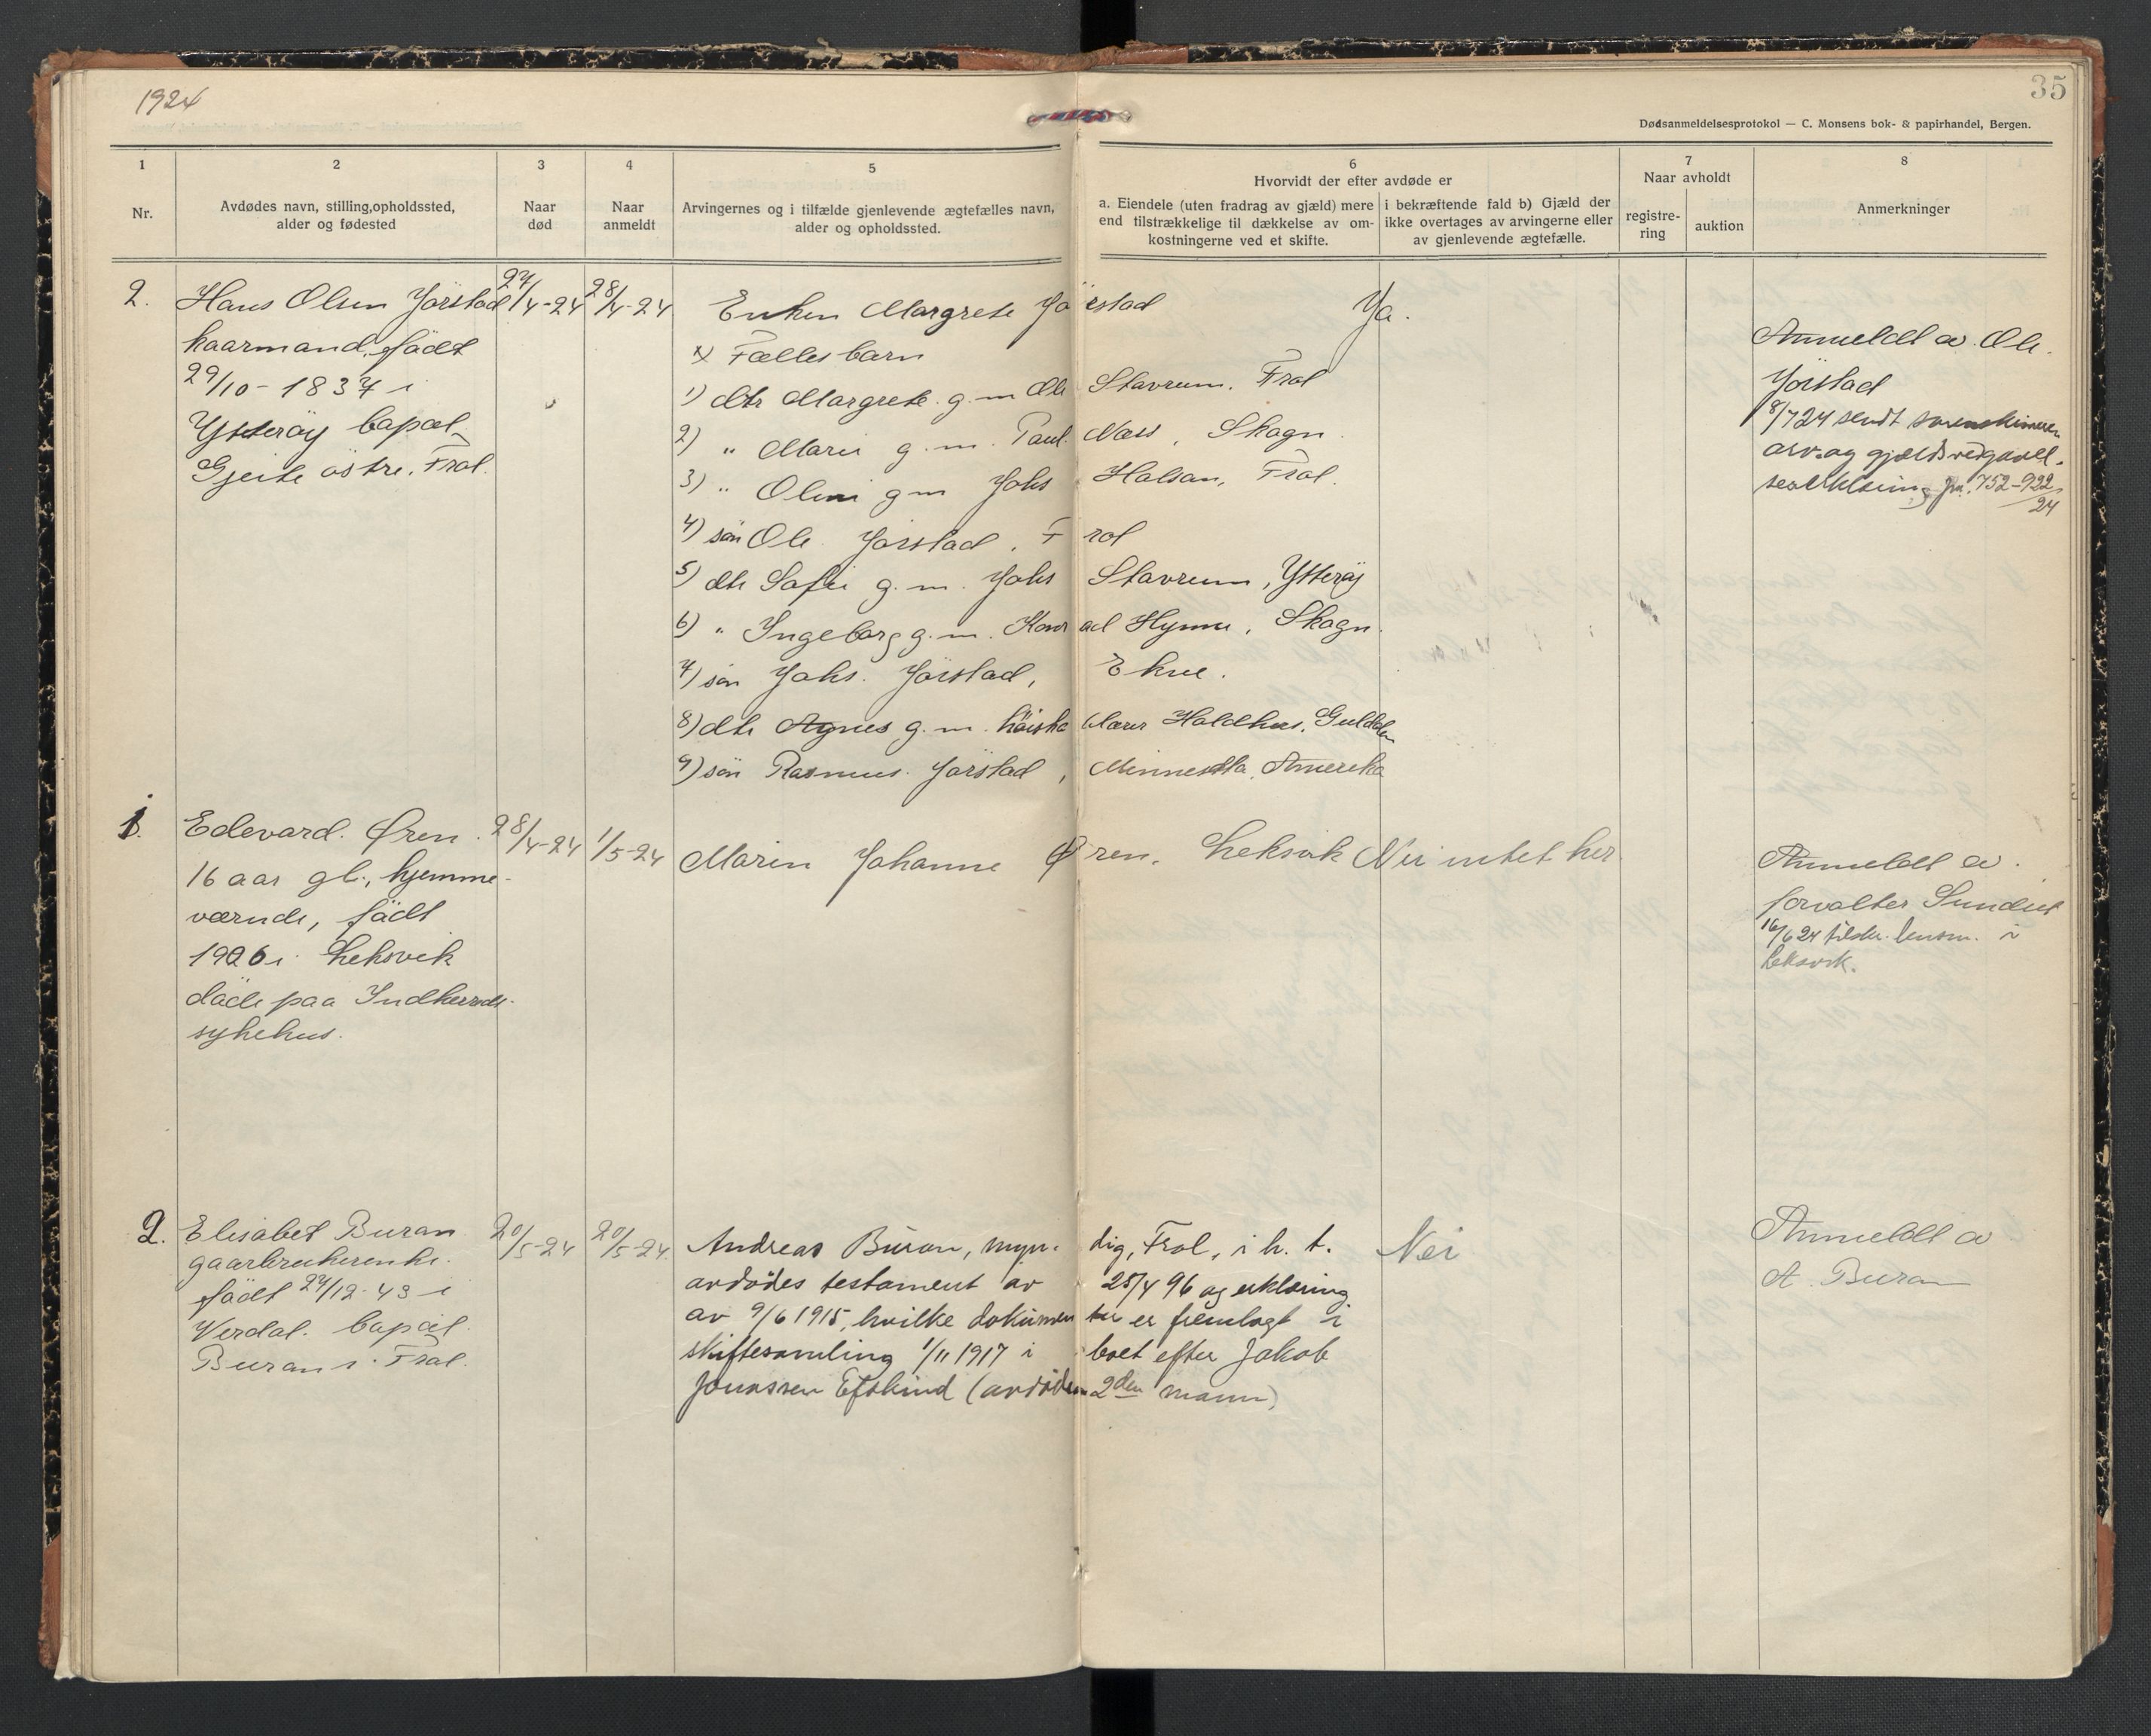 1924
35
Dødsanmeldelsesprotokol — C. Monsens bok- & papirhandel, Bergen.
1
2
3
4
5
6
7
8
Nr.
Avdødes navn, stilling, opholdssted,
alder og fødested
Naar
død
Naar
anmeldt
Arvingernes og i tilfælde gjenlevende ægtefælles navn,
alder og opholdssted.
Hvorvidt der efter avdøde er
a. Eiendele (uten fradrag av gjæld) mere
end tilstrækkelige til dækkelse av om-
kostningerne ved et skifte.
i bekræftende fald b) Gjæld der
ikke overtages av arvingerne eller
av gjenlevende ægtefælle.
Naar avholdt
registre-
ring
auktion
Anmerkninger
2.
Hans Olsen Jörstad
kaarmand, födt
29/10 - 1837 i
Ytteröy bopæl
Gjeite östre. Frol.
27/4-24
28/4-24
Enken Margrete Jörstad
x Fællesbarn
1) dtr Margrete g.m Ole Stavrum. Frol
2) " Marie g.m. Paul Næss, Skogn.
3) " Oline gm Johs Halsan, Frol.
4) sön Ole Jörstad, Frol
5) dtr Sofie g.m. Johs Stavrum, Ytteröy
6) " Ingeborg g.m. Konrad Hynne, Skogn.
7) sön Johs. Jörstad, Ekne.
8) dtr Agnes g.m. höiskolelærer Haldhus, Guldalen
9) sön Rasmus Jörstad, Minnesotta, Amerika
Ja.
Anmeldt av Ole
Jörstad
8/7 24 sendt sorenskriveren
arv og gjældsvedgaael-
seserklæring jn. 752-922/24
1.
Edevard Øren.
16 aar gl., hjemme-
værende, födt
1906 i Leksvik
döde paa Indherreds
sykehus.
28/4-24
1/5-24
Maren Johanne Øren, Leksvik
Nei intet her
Anmeldt av
forvalter Sundset
16/6 24 tilskr. lensm. i
Leksvik.
2.
Elisabet Buran
gaarbrukerenke
födt 27/12-43 i
Verdal. bopæl
Buran i Frol.
20/5-24
20/5-24
Andreas Buran, myndig, Frol, i h. t.
avdödes testament av 25/4 96 og erklæring
av 9/6 1915, hvilke dokumenter er fremlagt i
skiftesamling 1/11 1917 i boet efter Jakob
Jonassen Efskind (avdödes 2den mann)
Nei
Anmeldt av
A. Buran